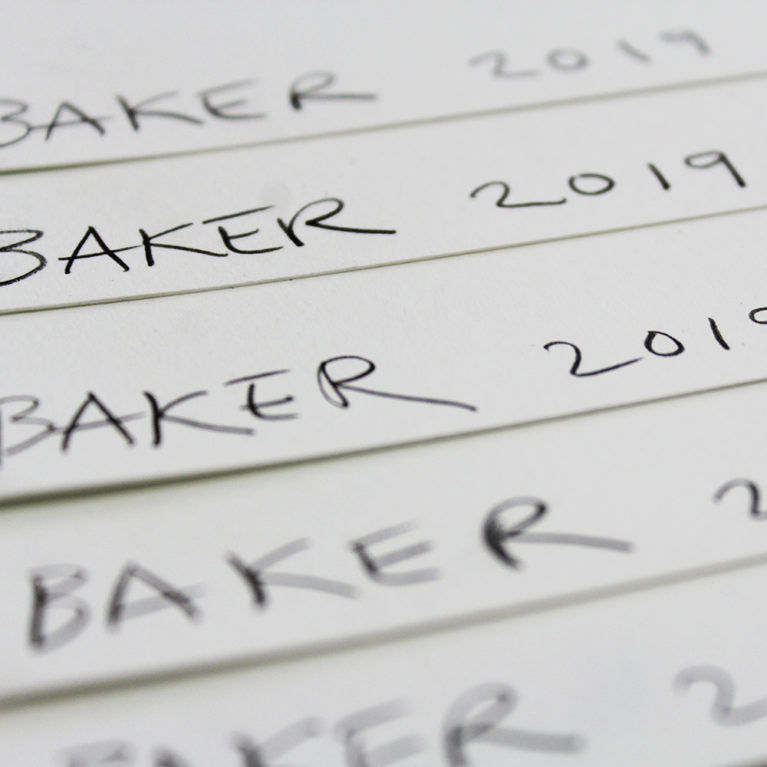 BAKER 2019
BAKER 2019
BAKER 2019
BAKER 2
BAKER 2